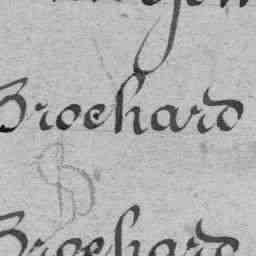 Brochard
B.
Brochard